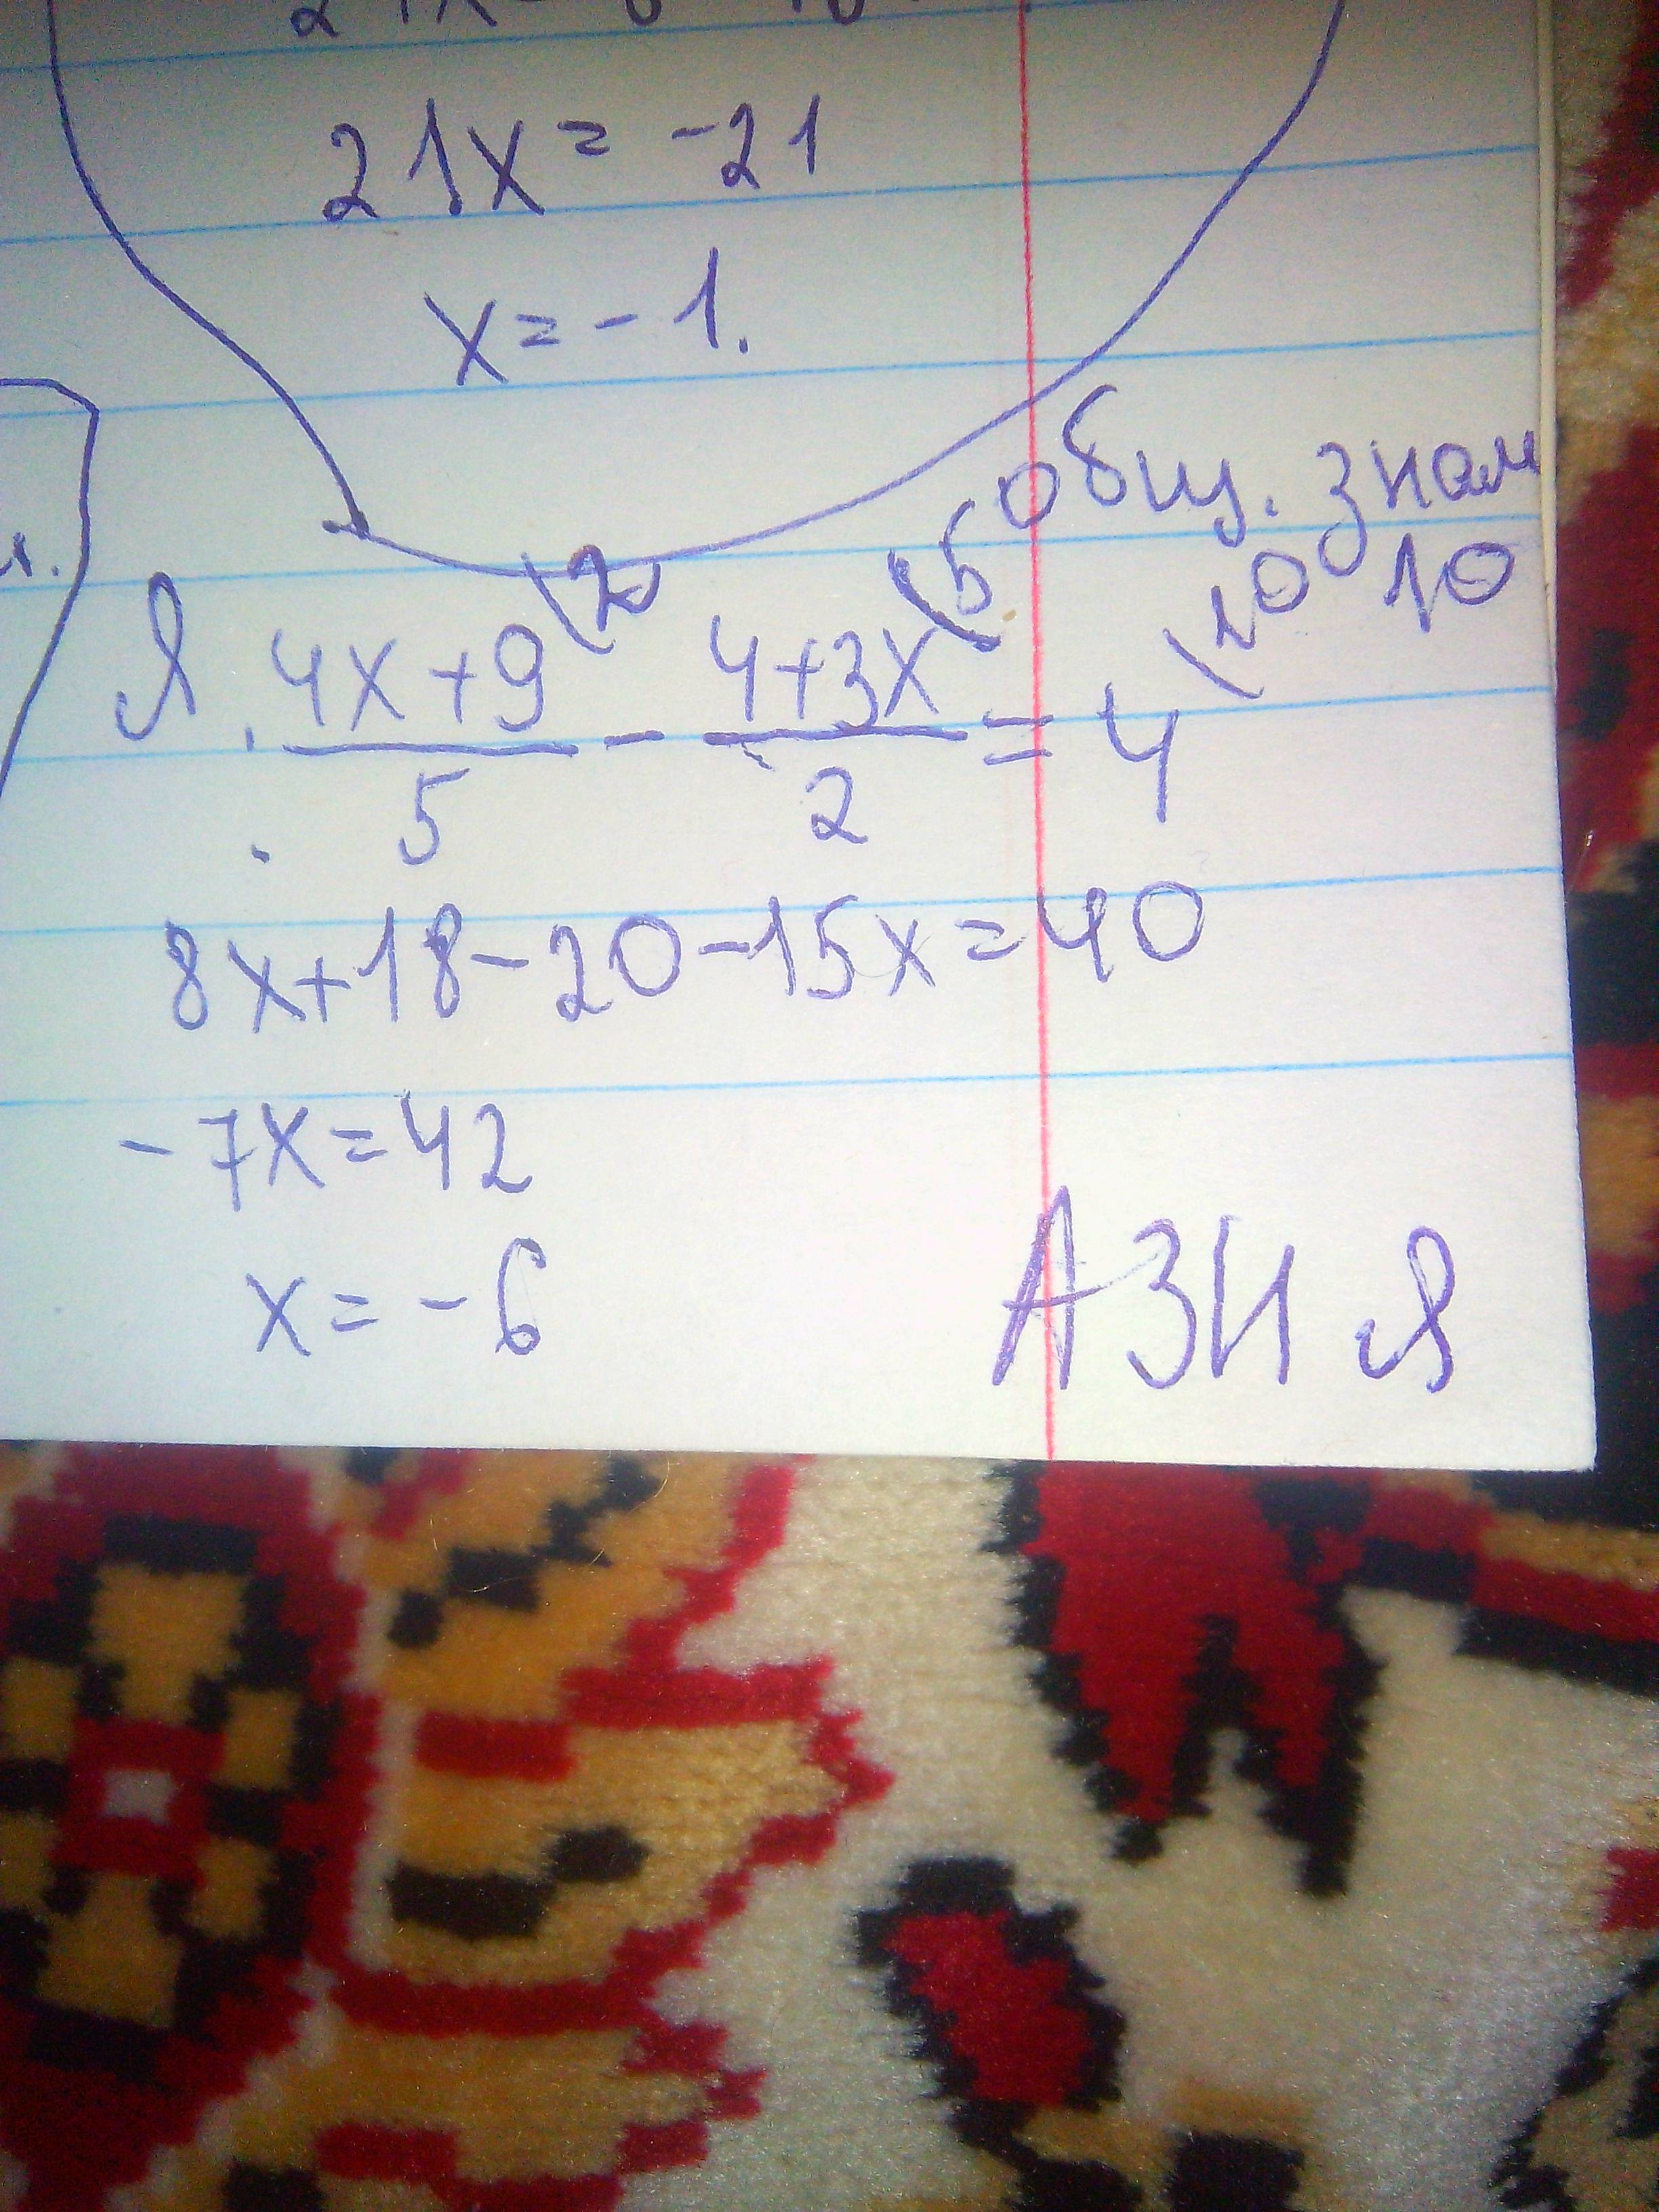 21x = -21
x = -1.
общ. знам
10
Я. \frac{4x+9}{5}\2 - \frac{4+3x}{2}\5 = 4\10
8x+18-20-15x=40
-7x=42
x = -6
АЗН Я